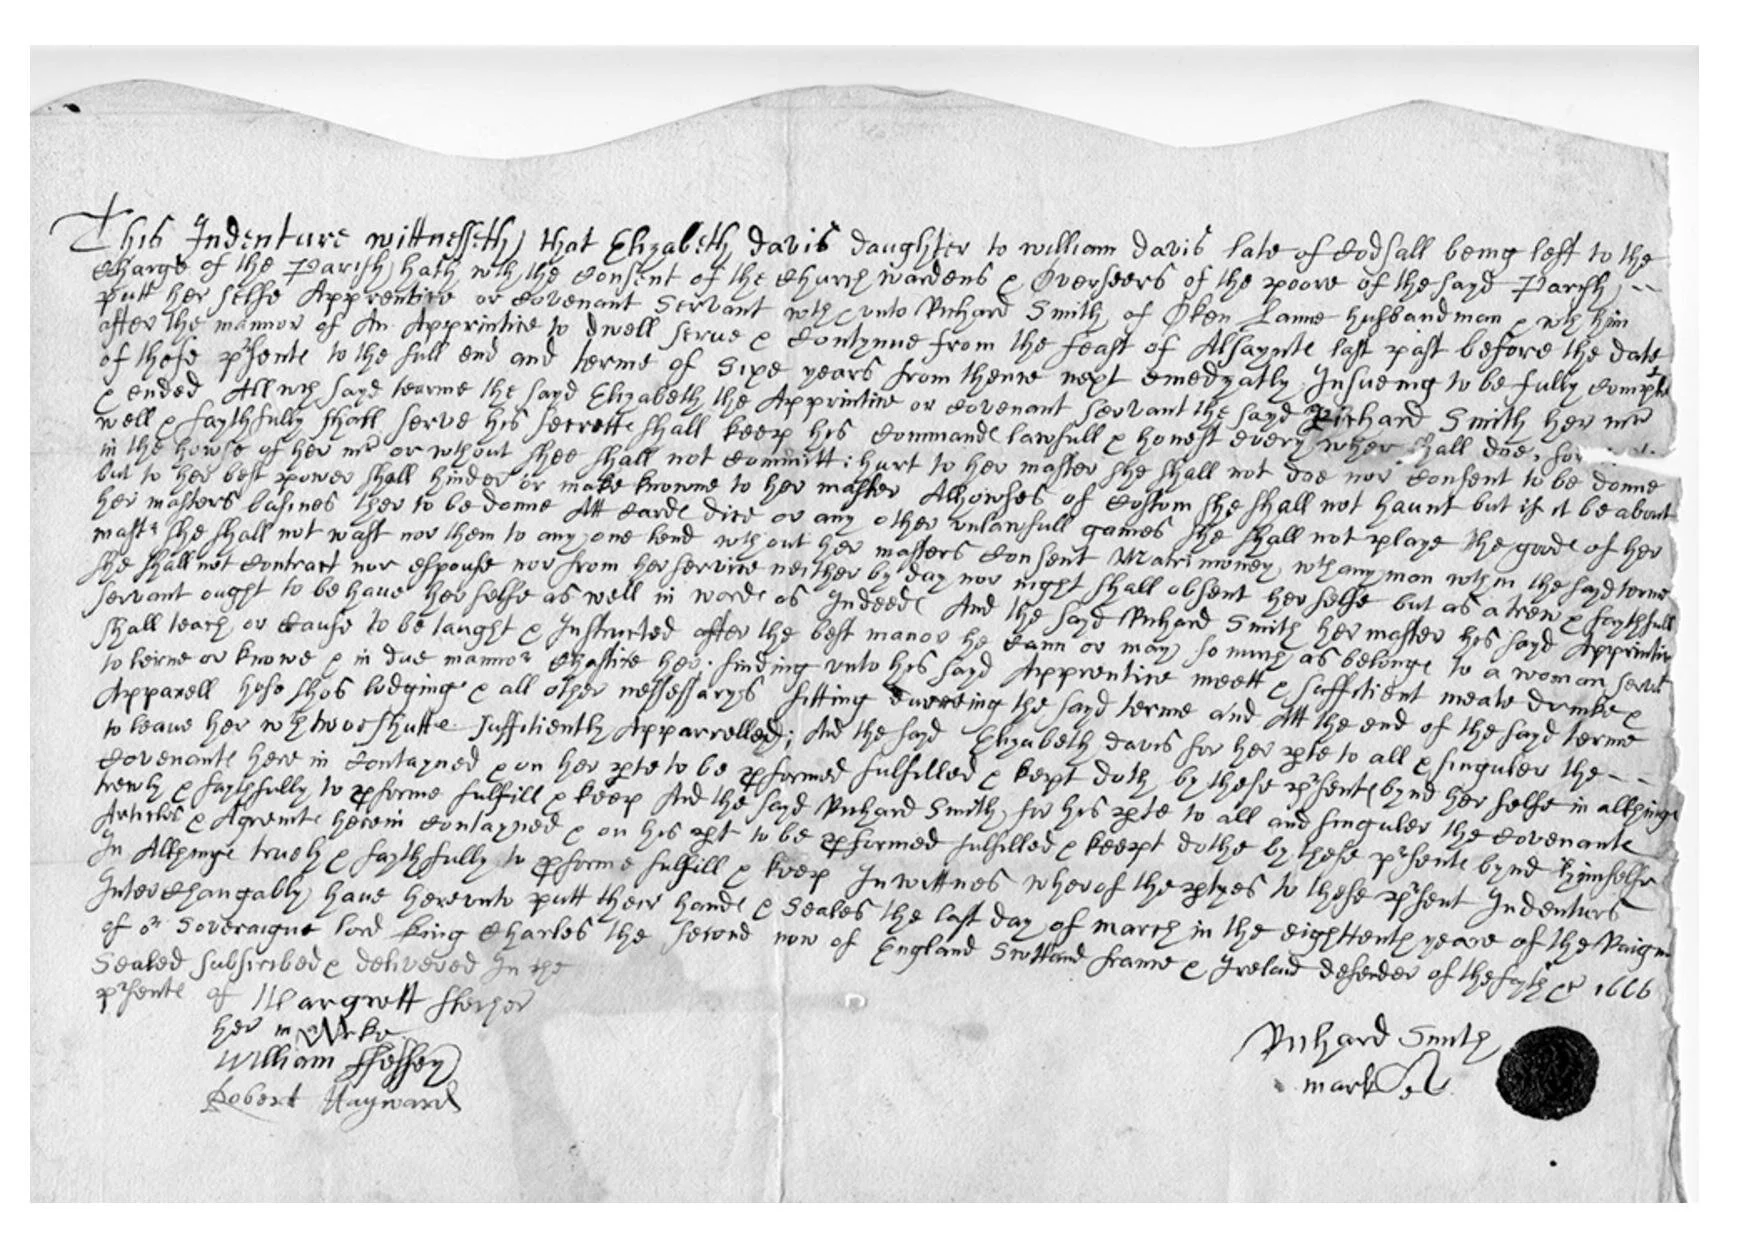 This Indenture wittnesseth that Elizabeth Davis daughter to william Davis late of Codsall being left to the
Charge of the Parish hath wth the Consent of the Church wardens & Overseers of the poore of the sayd Parish --
putt her selfe Apprentice or Covenant Servant wth & unto Richard Smith of Oken Lanne husbandman & wth him
after the mannor of An Apprintice to dwell serve & Contynue from the feast of Alsaynts last past before the date
of these prsents to the full end and terme of Sixe years from thence next emedyatly Insueing to be fully
& ended All wch sayd tearme the sayd Elizabeth the Apprintice or Covenant servant the sayd Richard Smith her mr
well & faythfully shall serve his secretts shall keep his Commands lawfull & honest every wher shall doe,
in the howse of her mr or wthout shee shall not Committ: hurt to her master she shall not doe nor Consent to be donne
but to her best power shall hinder or make knowne to her master Alhowses of Costom she shall not haunt but if it be about
her masters busines ther to be donne Att Cards dice or any other unlawfull games she shall not playe the goods of her
mastr she shall not wast nor them to any one lend wthout her masters Consent Matrimoney wth any man wthin the sayd terme
she shall not Contract nor espouse nor from her service neither by day nor night shall absent her selfe but as a trew & faythfull
servant ought to behave her selfe as well in words as Indeeds And the sayd Richard Smith her master his sayd Apprintice
shall teach or Cause to be taught & Instructed after the best manor he Cann or may so much as belongs to a woman
to leirne or knowe & in due mannor Chastice her. finding unto his sayd Apprentice meett & suffitient meate drinke &
Apparell hose shos lodging & all other nessessarys fitting dureing the sayd terme and Att the end of the sayd terme
to leave her suffitiently Apparrelled; And the sayd Elizabeth Davis for her pte to all & singuler the --
Covenants here in Contayned & on her pte to be pformed fulfilled & kept doth by these prsents bynd her selfe in allthings
trewly & faythfully to pforme fulfill & keep And the sayd Richard Smith for his pte to all and singuler the Covenants
Articles & Agremts herein Contayned & on his pt to be pformed fulfilled & keept dothe by these prsents bynd himselfe
In Allthings truely & faythfully to pforme fulfill & keep In wittnes wherof the ptyes to these prsent Indenturs
Interchangably have hereunto putt their hands & Seales the last day of march in the eighttenth yeare of the Raigne
of or Soveraigne lord king Charles the second now of England Scottland france & Ireland defender of the fayth &c 1666
Sealed subscribed & delivered In the
prsents of Margrett
her marke
William
Robert Hayward
Richard Smith
mark